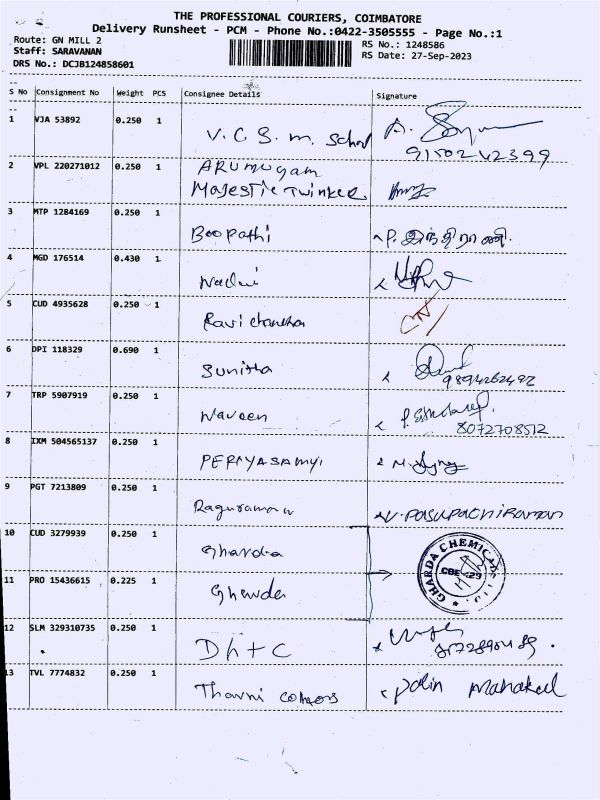 THE PROFESSIONAL COURIERS, COIMBATORE
Delivery Runsheet - PCM - Phone No.:0422-3505555 - Page No.:1
Route: GN MILL 2
RS No.: 1248586
Staff: SARAVANAN
RS Date: 27-Sep-2023
DRS No.: DCJB124858601
S No Consignment No Weight PCS Consignee Details Signature
1 VJA 53892 0.250 1 V. C. S. m. School A.
9150242399
2 VPL 220271012 0.250 1 ARUMUGAM
Majestic Twinker
3 MTP 1284169 0.250 1 Boopathi P. இந்திராணி.
4 MGD 176514 0.430 1
5 CUD 4935628 0.250 1 Ravi chandran
6 DPI 118329 0.690 1 Sunitha
9894262492
7 TRP 5907919 0.250 1 Naveen
8072708512
8 IXM 504565137 0.250 1 PERIYASAMYI
9 PGT 7213809 0.250 1 Raguraman V. PASUPATHIRAMAN
10 CUD 3279939 0.250 1 Gharda GHARDA CHEMICALS LTD.
CBE-29
11 PRO 15436615 0.225 1 Gharda
12 SLM 329310735 0.250 1 DhTC
13 TVL 7774832 0.250 1